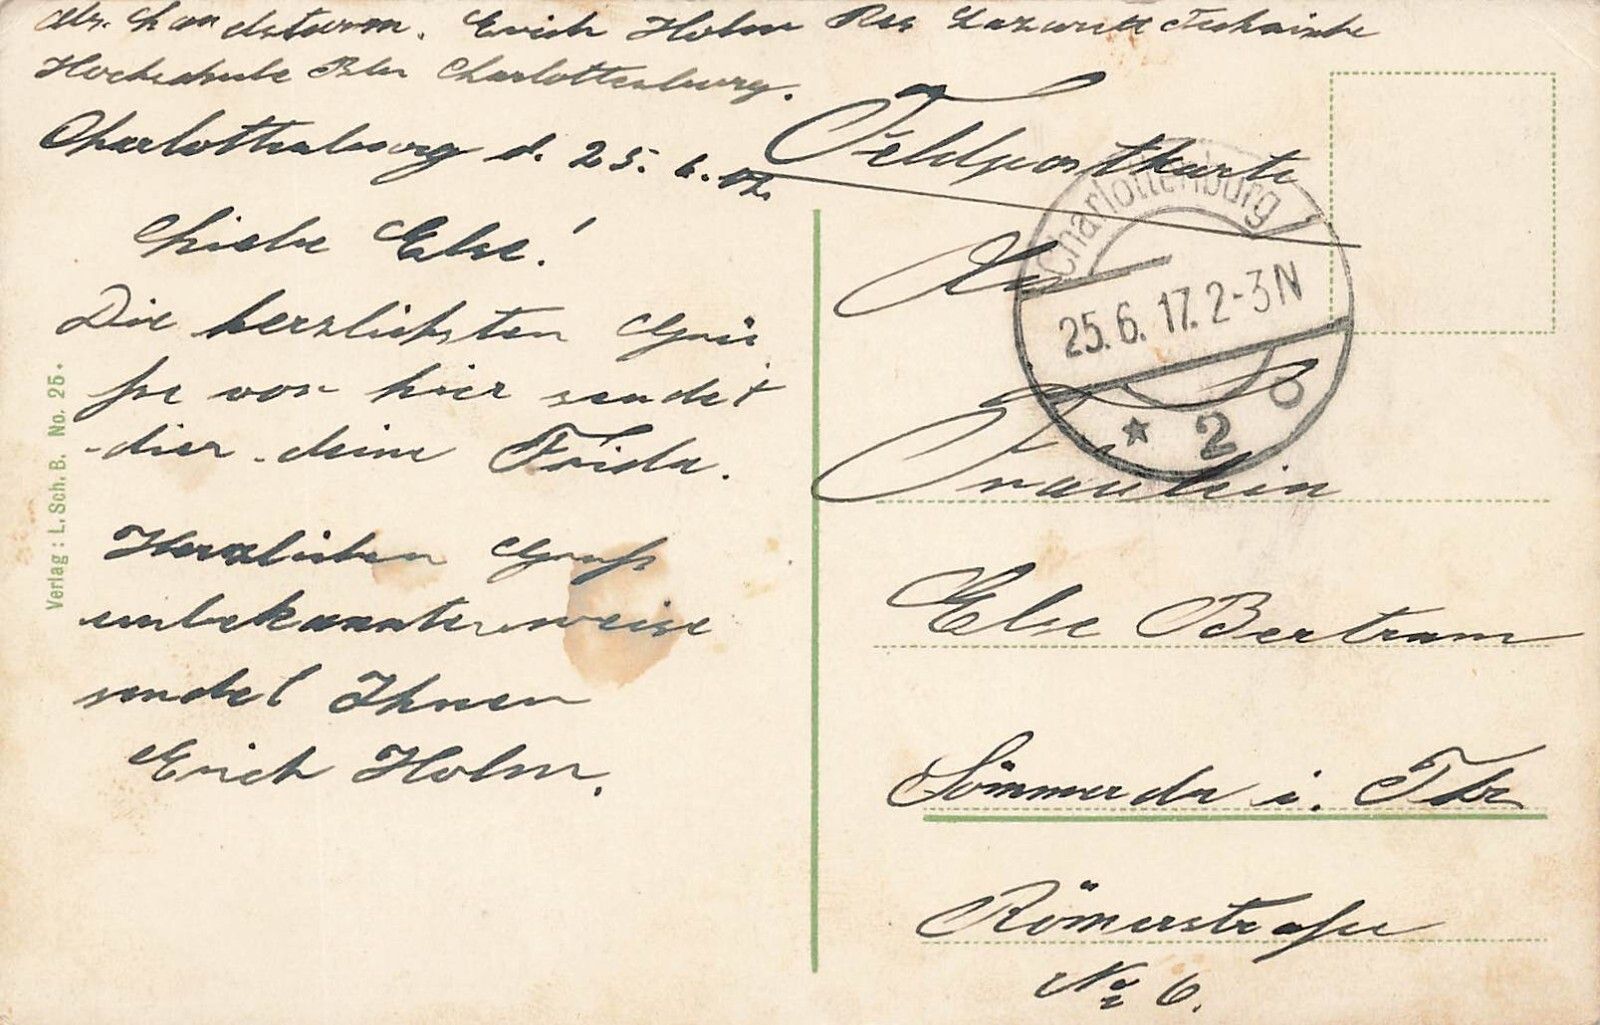 Abs. Landsturm. Erich Holm Res Lazarett Technische
Hochschule Bln Charlottenburg.
Charlottenburg d. 25. 6. 17.
Liebe Else!
Die herzlichsten Grü
ße von hier sendet
dier deine Frida.
Herzlichen Gruß
unbekannterweise
sendet Ihnen
Erich Holm.
Feldpostkarte
An
Fräulein
Else Bertram
Sömmerda i. Thr
Römerstraße
No 6.
Charlottenburg
25.6.17. 2-3N
* 2
Verlag: L. Sch. B. No. 25.